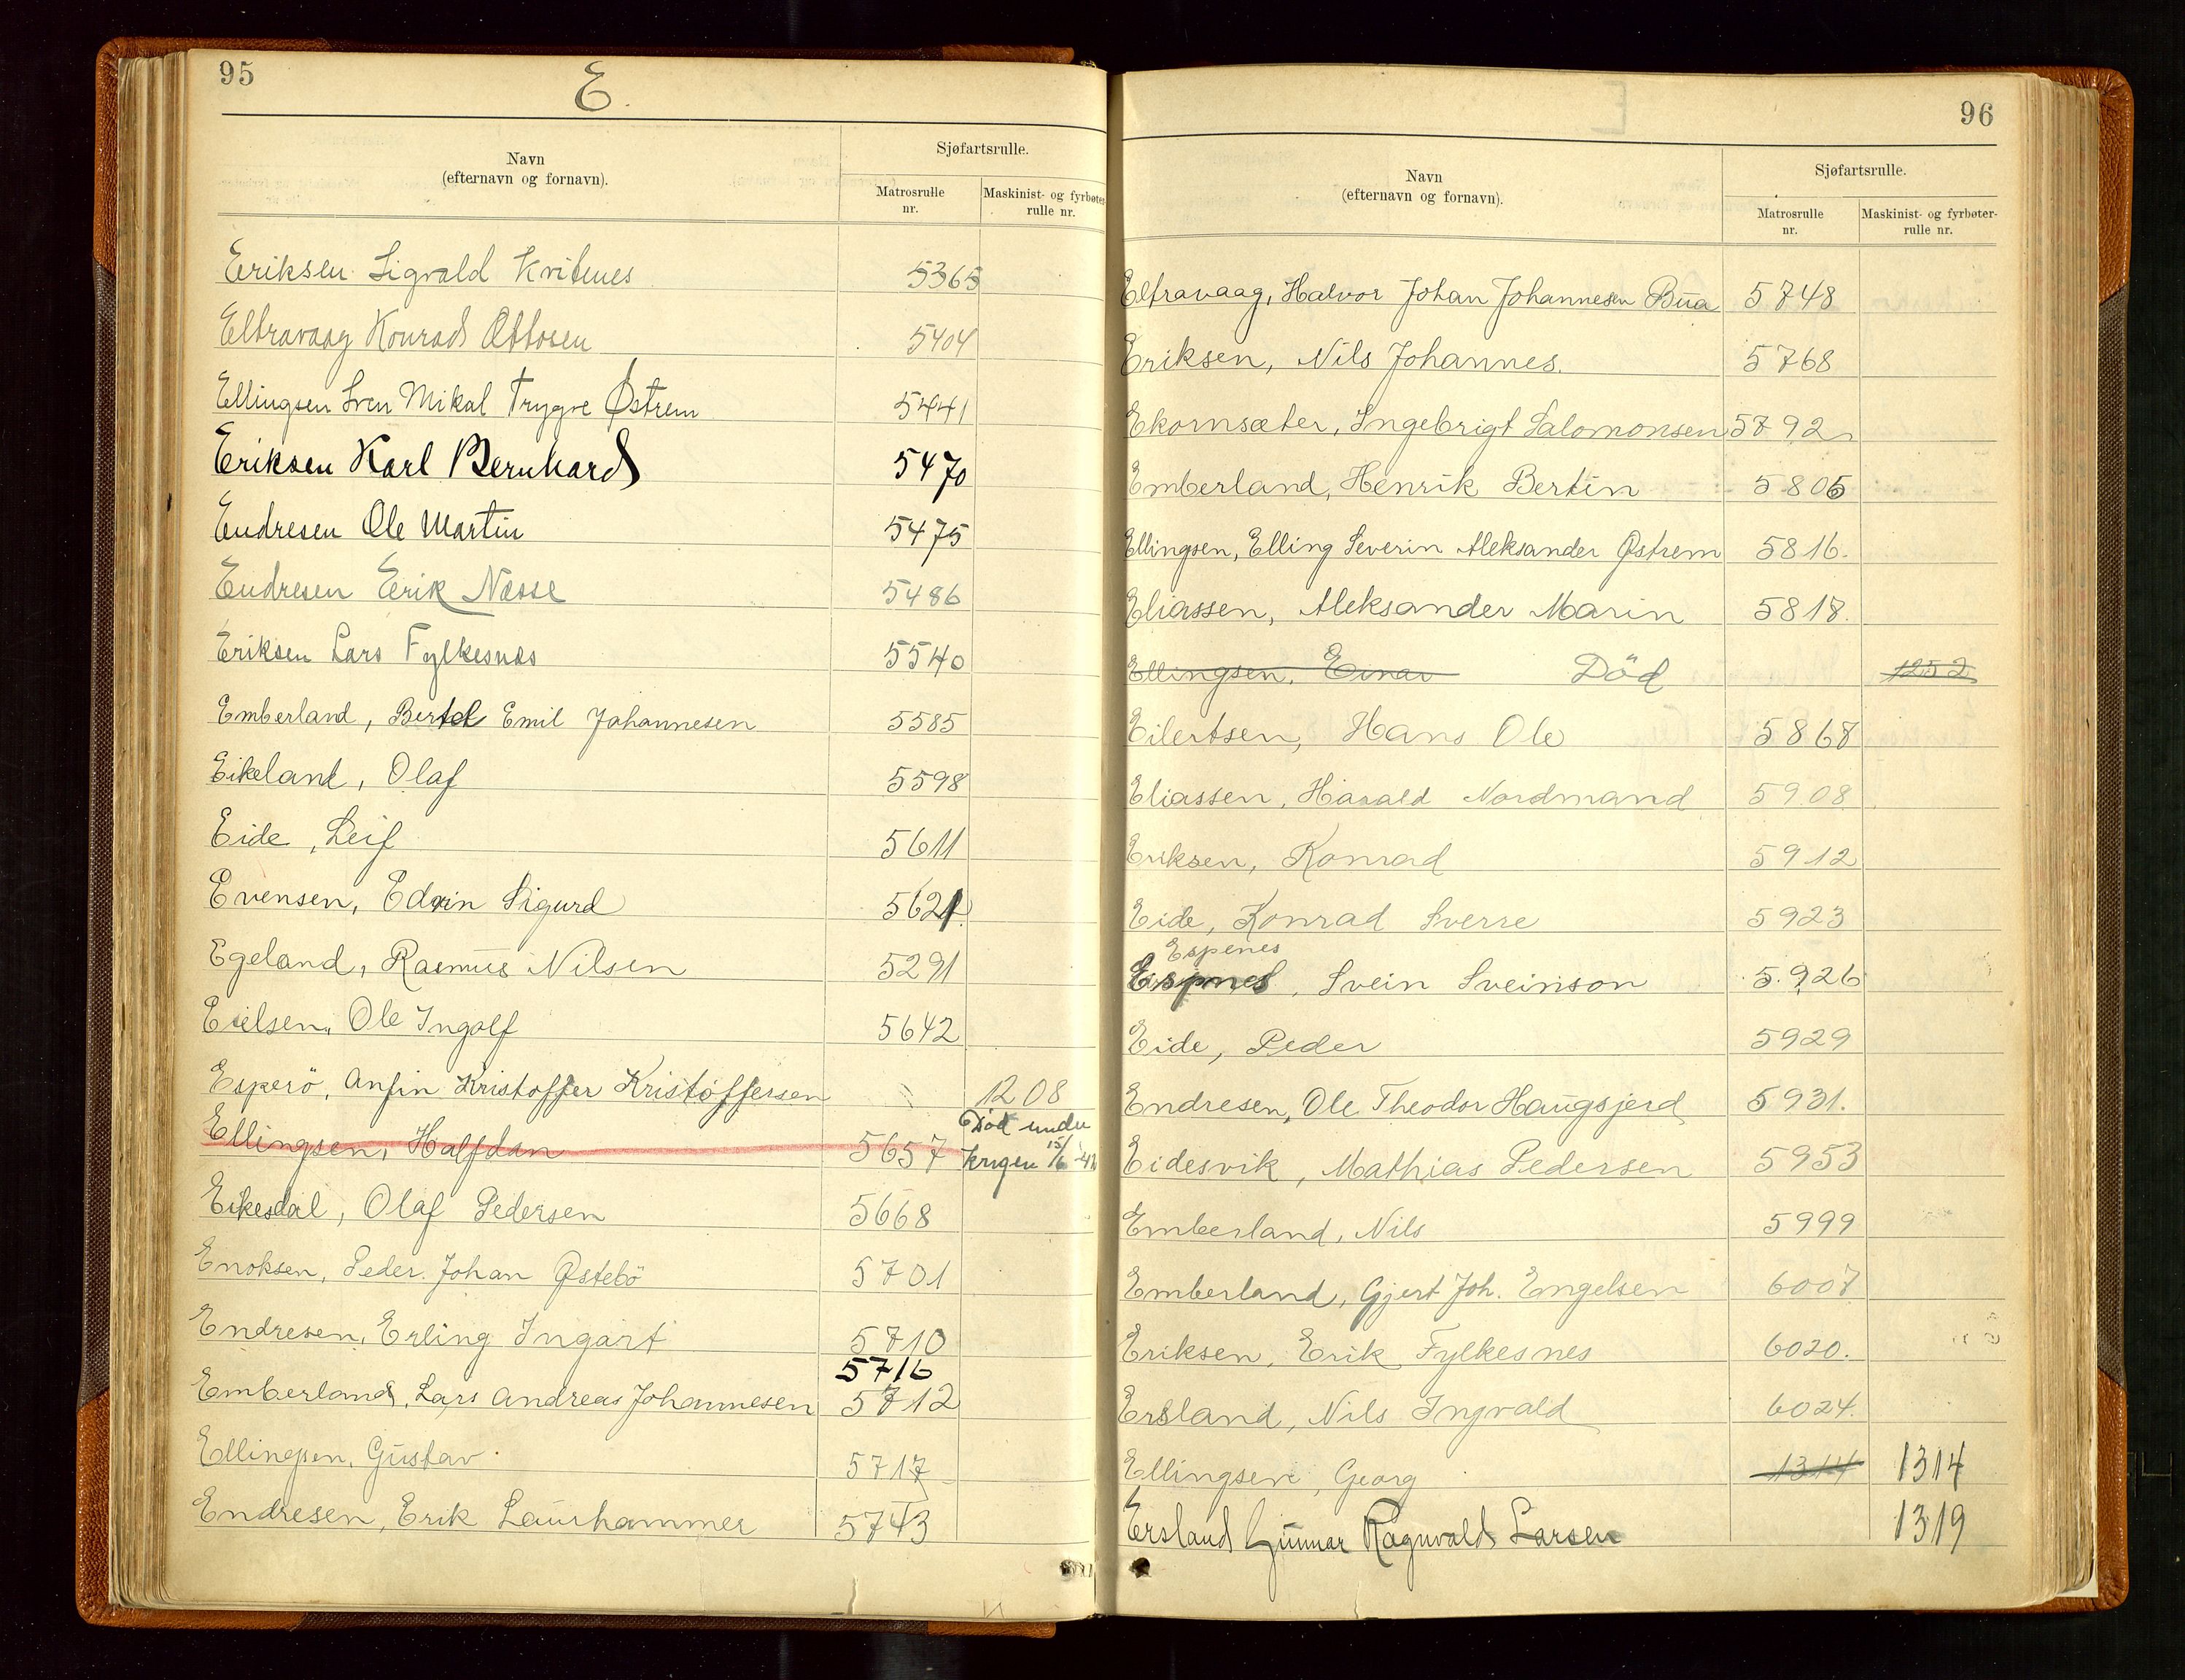 95
E.
Navn
(efternavn og fornavn).
Sjøfartsrulle.
Matrosrulle
nr.
Maskinist- og fyrbøter
rulle nr.
Eeriksen Sigvald Kvitenes 5365
Eltravaag Konrad Ottosen 5404
Ellingsen Sven Mikal Trygve Østrem 5441
Eriksen Karl Bernhard 5470
Endresen Ole Martin 5475
Endresen Eerik Næsse 5486
Eriksen Lars Fylkesnæs 5540
Emberland, Bertel Emil Johannesen 5585
Eikeland, Olaf 5598
Eide, Leif 5611
Evensen, Edvin Sigurd 5621
Egeland, Rasmus Nilsen 5291
Eielsen, Ole Ingolf 5642
Esperö, Anfin Kristoffer Kristoffersen 1208
Ellingsen, Halfdan 5657 Död under
krigen 15/6-41
Eikesdal, Olaf Pedersen 5668
Enoksen, Peder Johan Østebö 5701
Endresen, Erling Ingart 5710
5716
Emberland, Lars Andreas Johannesen 5712
Ellingsen, Gustav. 5717
Endresen, Erik Laurhammer 5743
96
Navn
(efternavn og fornavn).
Sjøfartsrulle.
Matrosrulle
nr.
Maskinist- og fyrbøter-
rulle nr.
Eltravaag, Halvor Johan Johannesen Bua 5748
Eriksen, Nils Johannes. 5768
Ekornsæter, Ingebrigt Salomonsen 5792
Emberland, Henrik Bertin 5805
Ellingsen, Elling Severin Aleksander Østrem 5816.
Eliassen, Aleksander Marin 5818.
Ellingsen, Einar Död 1252
Eilertsen, Hans Ole 5868
Eliassen, Harald Nordmand 5908
Eriksen, Konrad 5912
Eide, Konrad Sverre 5923
Espenes
Espnes, Svein Sveinson 5926
Eide, Peder 5929
Endresen, Ole Theodor Haugsjerd 5931.
Eidesvik, Mathias Pedersen 5953
Emberland, Nils 5999
Emberland, Gjert Joh. Engelsen 6007
Eriksen, Erik Fylkesnes 6020.
Ersland, Nils Ingvald 6024.
Ellingsen, Georg 1314 1314
Ersland Gunnar Ragnvald Larsen 1319